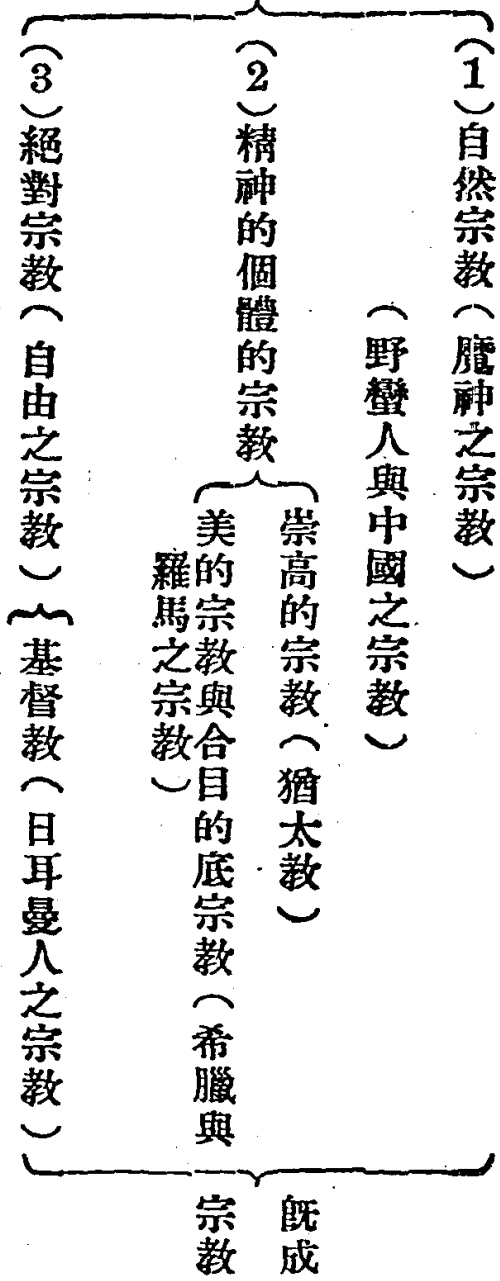 （1）自然宗教（魔神之宗教）
（野蠻人與中國之宗教）
（2）精神的個體的宗教
崇高的宗教（猶太教）
美的宗教與合目的底宗教（希臘與
羅馬之宗教）
（3）絕對宗教（自由之宗教）
基督教（日耳曼人之宗教）
旣成
宗教